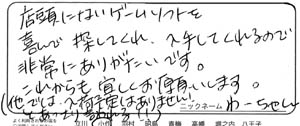 店頭にないゲームソフトを
喜んで探してくれ、入手してくれるので
非常にありがたいです。
これからも宜しくお願いします。
(他では、入荷未定はありません!
ニックネーム わーちゃん
立川 小作 羽村 昭島 青梅 高幡 堀之内 八王子